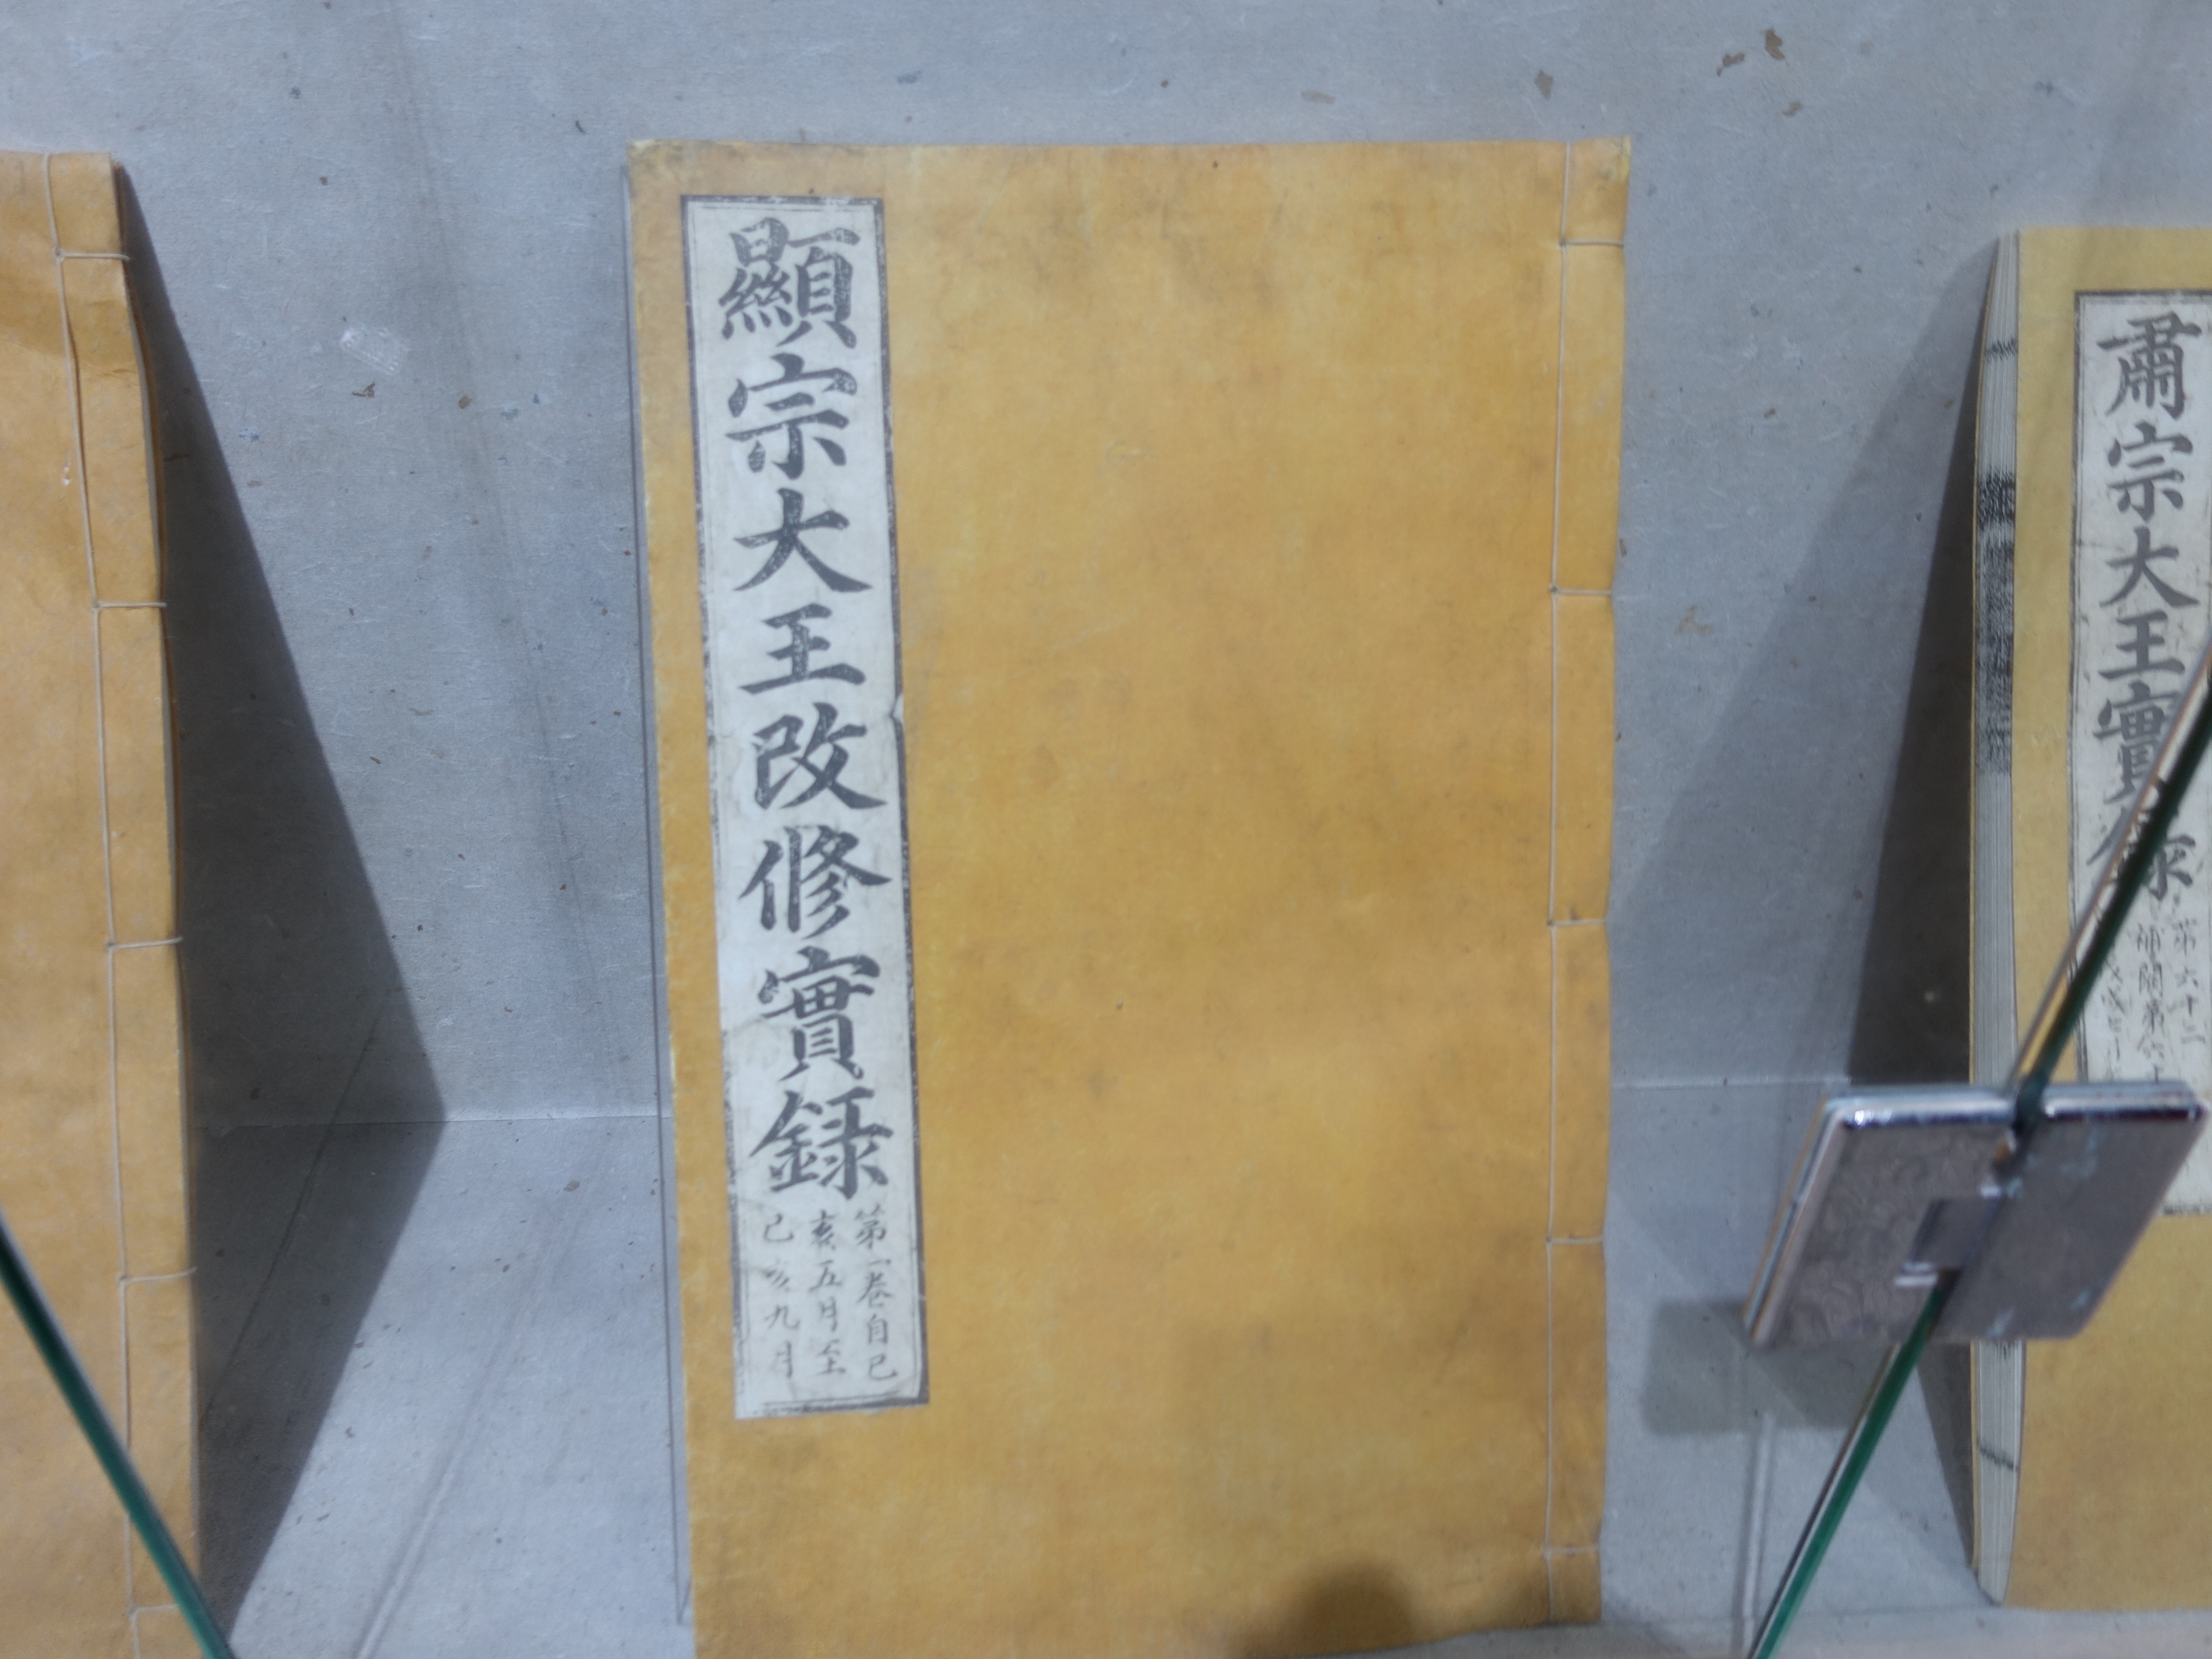 顯宗大王改修實錄
第一卷自己
亥五月至
己亥九月
肅宗大王實錄
第六十五
補闕